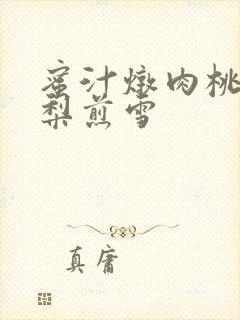 蜜汁燉肉桃
梨煎雪
真庸